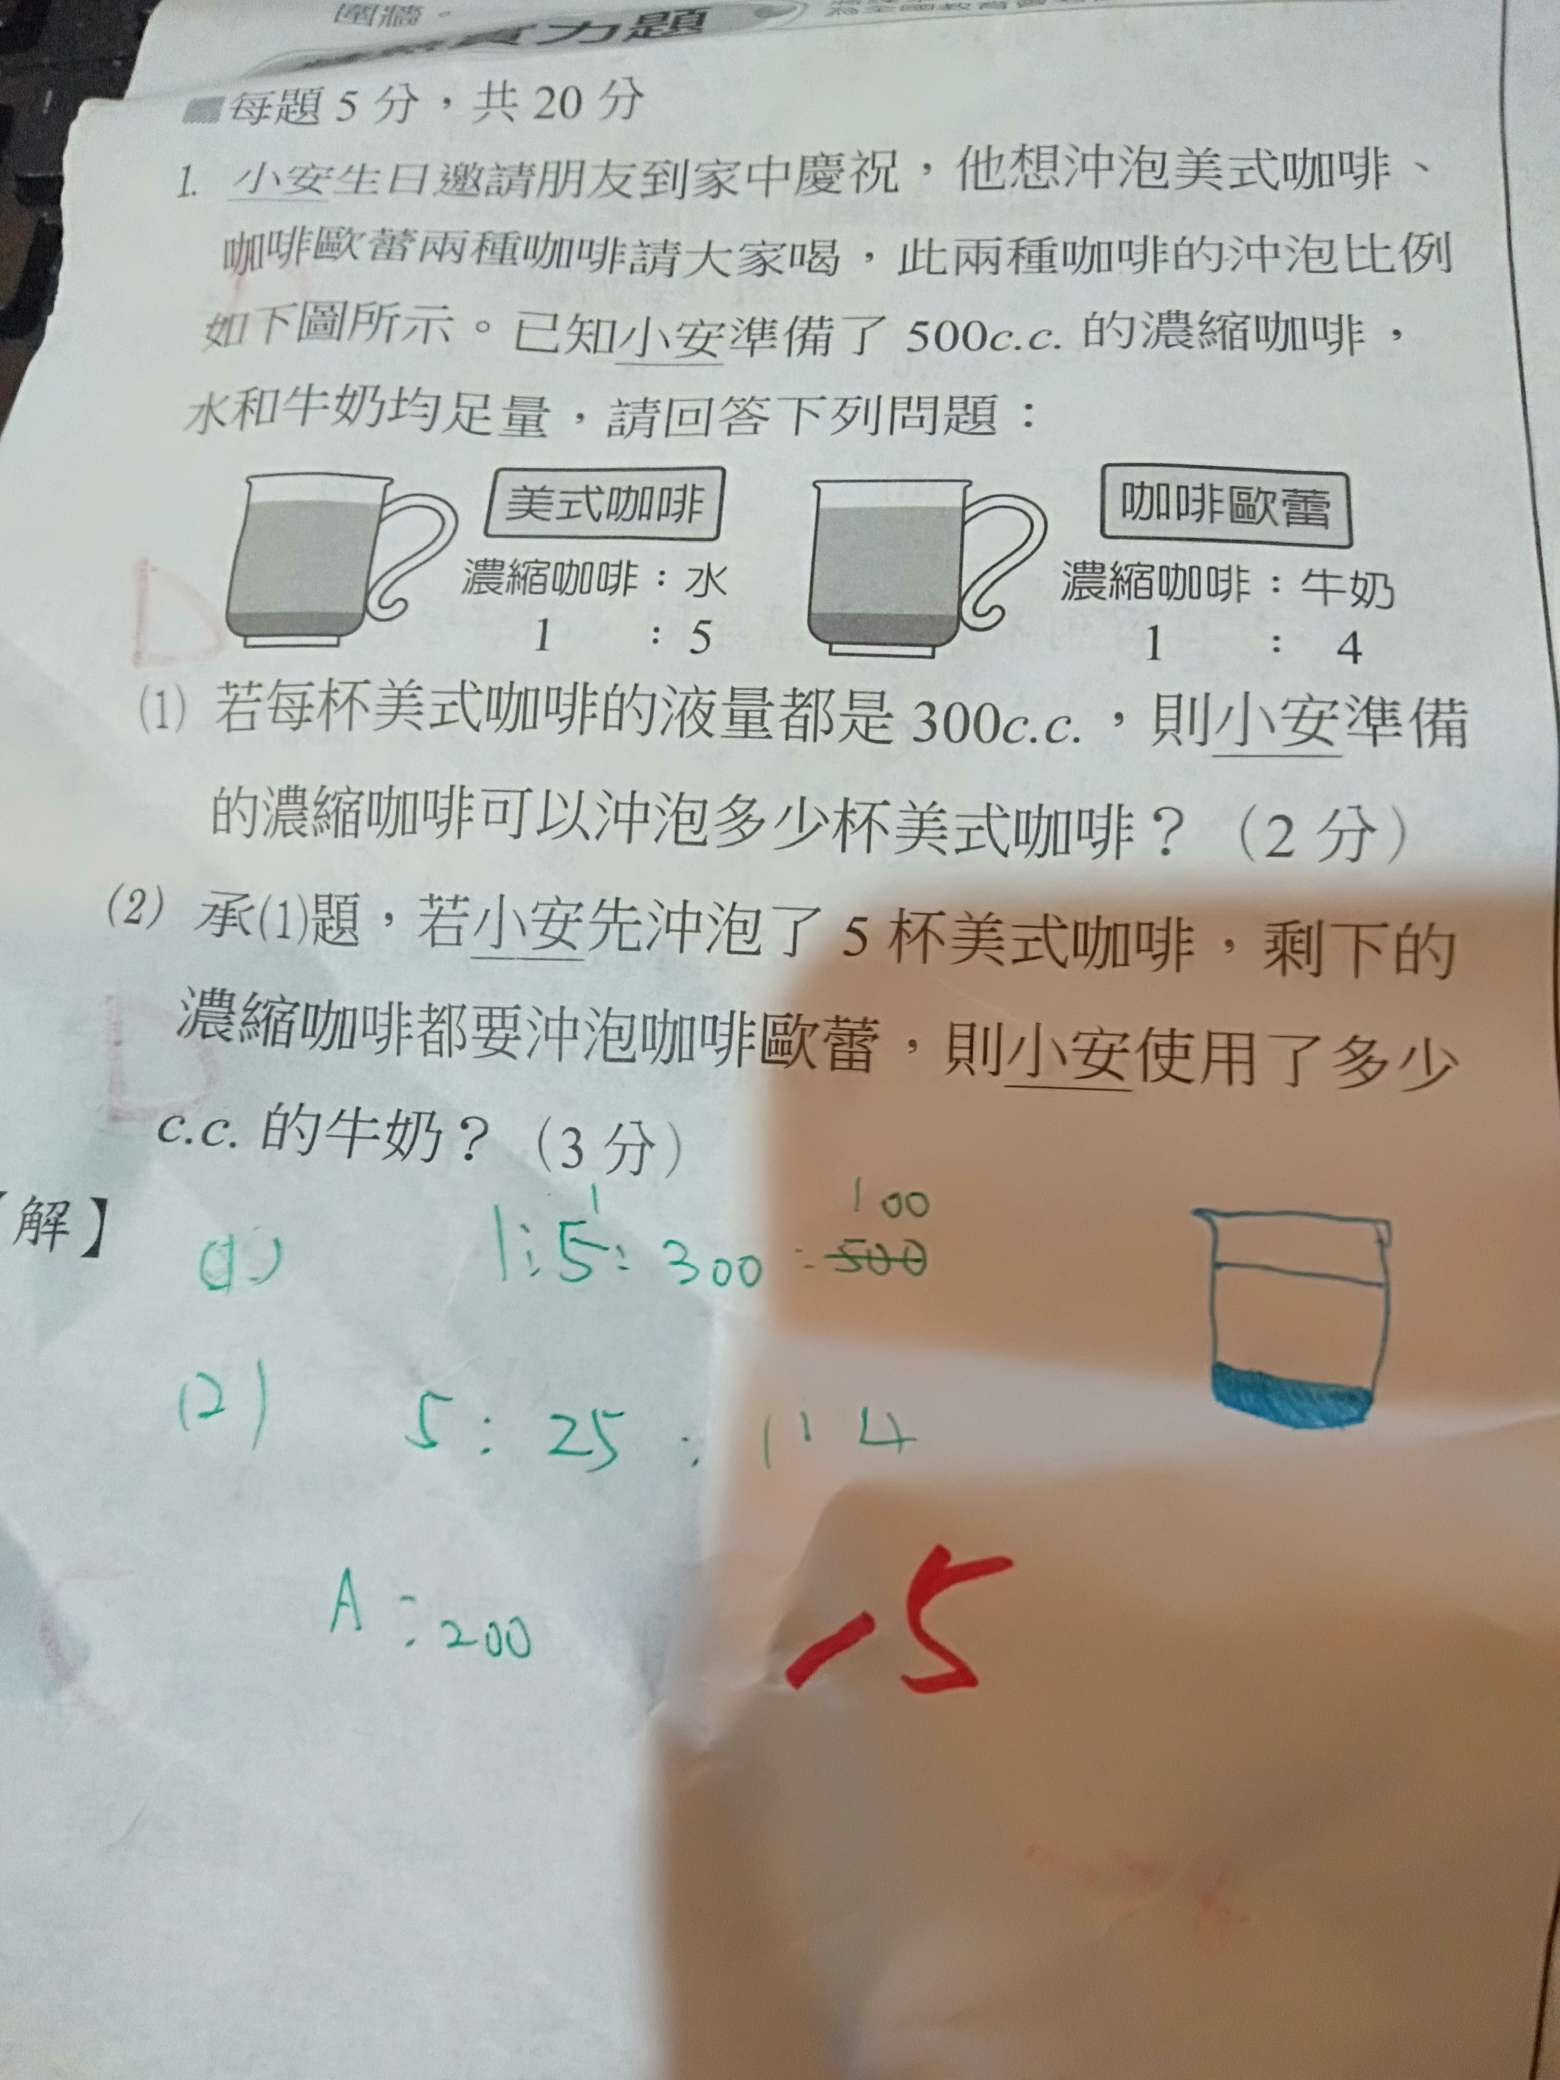 圍牆。
實力題
每題 5 分，共 20 分
1. 小安生日邀請朋友到家中慶祝，他想沖泡美式咖啡、
咖啡歐蕾兩種咖啡請大家喝，此兩種咖啡的沖泡比例
如下圖所示。已知小安準備了 500c.c. 的濃縮咖啡，
水和牛奶均足量，請回答下列問題：
美式咖啡
濃縮咖啡：水
1 ： 5
咖啡歐蕾
濃縮咖啡：牛奶
1 ： 4
(1) 若每杯美式咖啡的液量都是 300c.c.，則小安準備
的濃縮咖啡可以沖泡多少杯美式咖啡？（2 分）
(2) 承(1)題，若小安先沖泡了 5 杯美式咖啡，剩下的
濃縮咖啡都要沖泡咖啡歐蕾，則小安使用了多少
c.c. 的牛奶？（3 分）
【解】
(1) 1:5 1 : 300 : 500 100
(2) 5 : 25 : 1 : 4
A : 200
-5